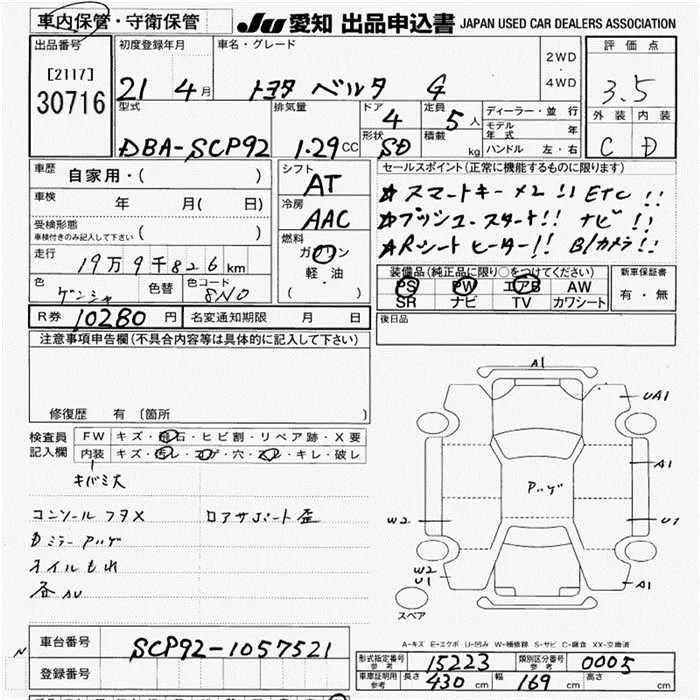 車内保管・守衛保管
JU 愛知 出品申込書 JAPAN USED CAR DEALERS ASSOCIATION
出品番号
[2117]
30716
初度登録年月
21 4 月
車名・グレード
トヨタ ベルタ G
2WD
・
4WD
評価点
3.5
外装 内装
C D
型式
DBA-SCP92
排気量
1.29 CC
ドア
4
形状
SD
定員
5 人
積載
kg
ディーラー・並行
モデル年式 年
ハンドル 左・右
車歴
自家用・( )
車検
年 月( 日)
受検形態
車検付きのみ記入して下さい ( )
走行
19万9千826km
色
ゲンシャ
色替
色コード
8N0
シフト
AT
冷房
AAC
燃料
ガソリン
軽・油
( ・ )
セールスポイント(正常に機能するものに限ります)
☆スマートキー×2!! ETC!!
☆プッシュスタート!! ナビ!!
☆Rシートヒーター!! B/カメラ!!
装備品(純正品に限り○をつけてください)
PS PW エアB AW
SR ナビ TV カワシート
新車保証書
有・無
R券 10280 円 名変通知期限 月 日
後日品
注意事項申告欄(不具合内容等は具体的に記入して下さい)
修復歴 有 〔箇所 〕
検査員
記入欄
FW キズ・飛石・ヒビ割・リペア跡・X要
内装 キズ・汚レ・コゲ・穴・スレ・キレ・破レ
キバミ大
コンソールフタX ロアサポート歪
DミラーPハゲ
オイルもれ
A1
UA1
A1
U1
A1
W2
W2
U1
Pハゲ
スペア
A-キズ E-エクボ U-凹み W-補修跡 S-サビ C-腐食 XX-交換済
車台番号 SCP92-1057521
登録番号
型式指定番号
参考
15223
類別区分番号
参考
0005
車庫証明用
参考
長さ 430 cm 幅 169 cm 高さ cm